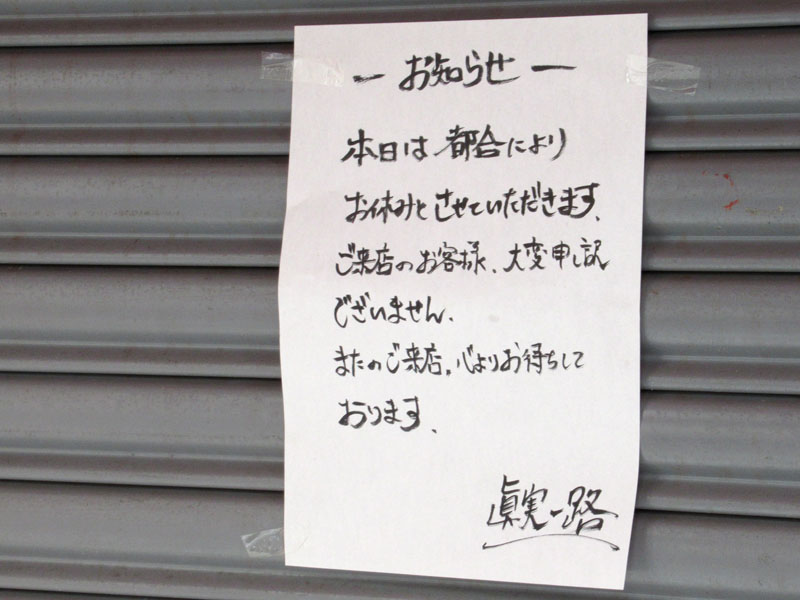 ー お知らせ ー
本日は都合により
お休みとさせていただきます、
ご来店のお客様、大変申し訳
ございません、
またのご来店、心よりお待ちして
おります、
眞実一路